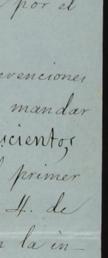 por el
evenciones
mandar
scientos
primer
4. de
n la in-